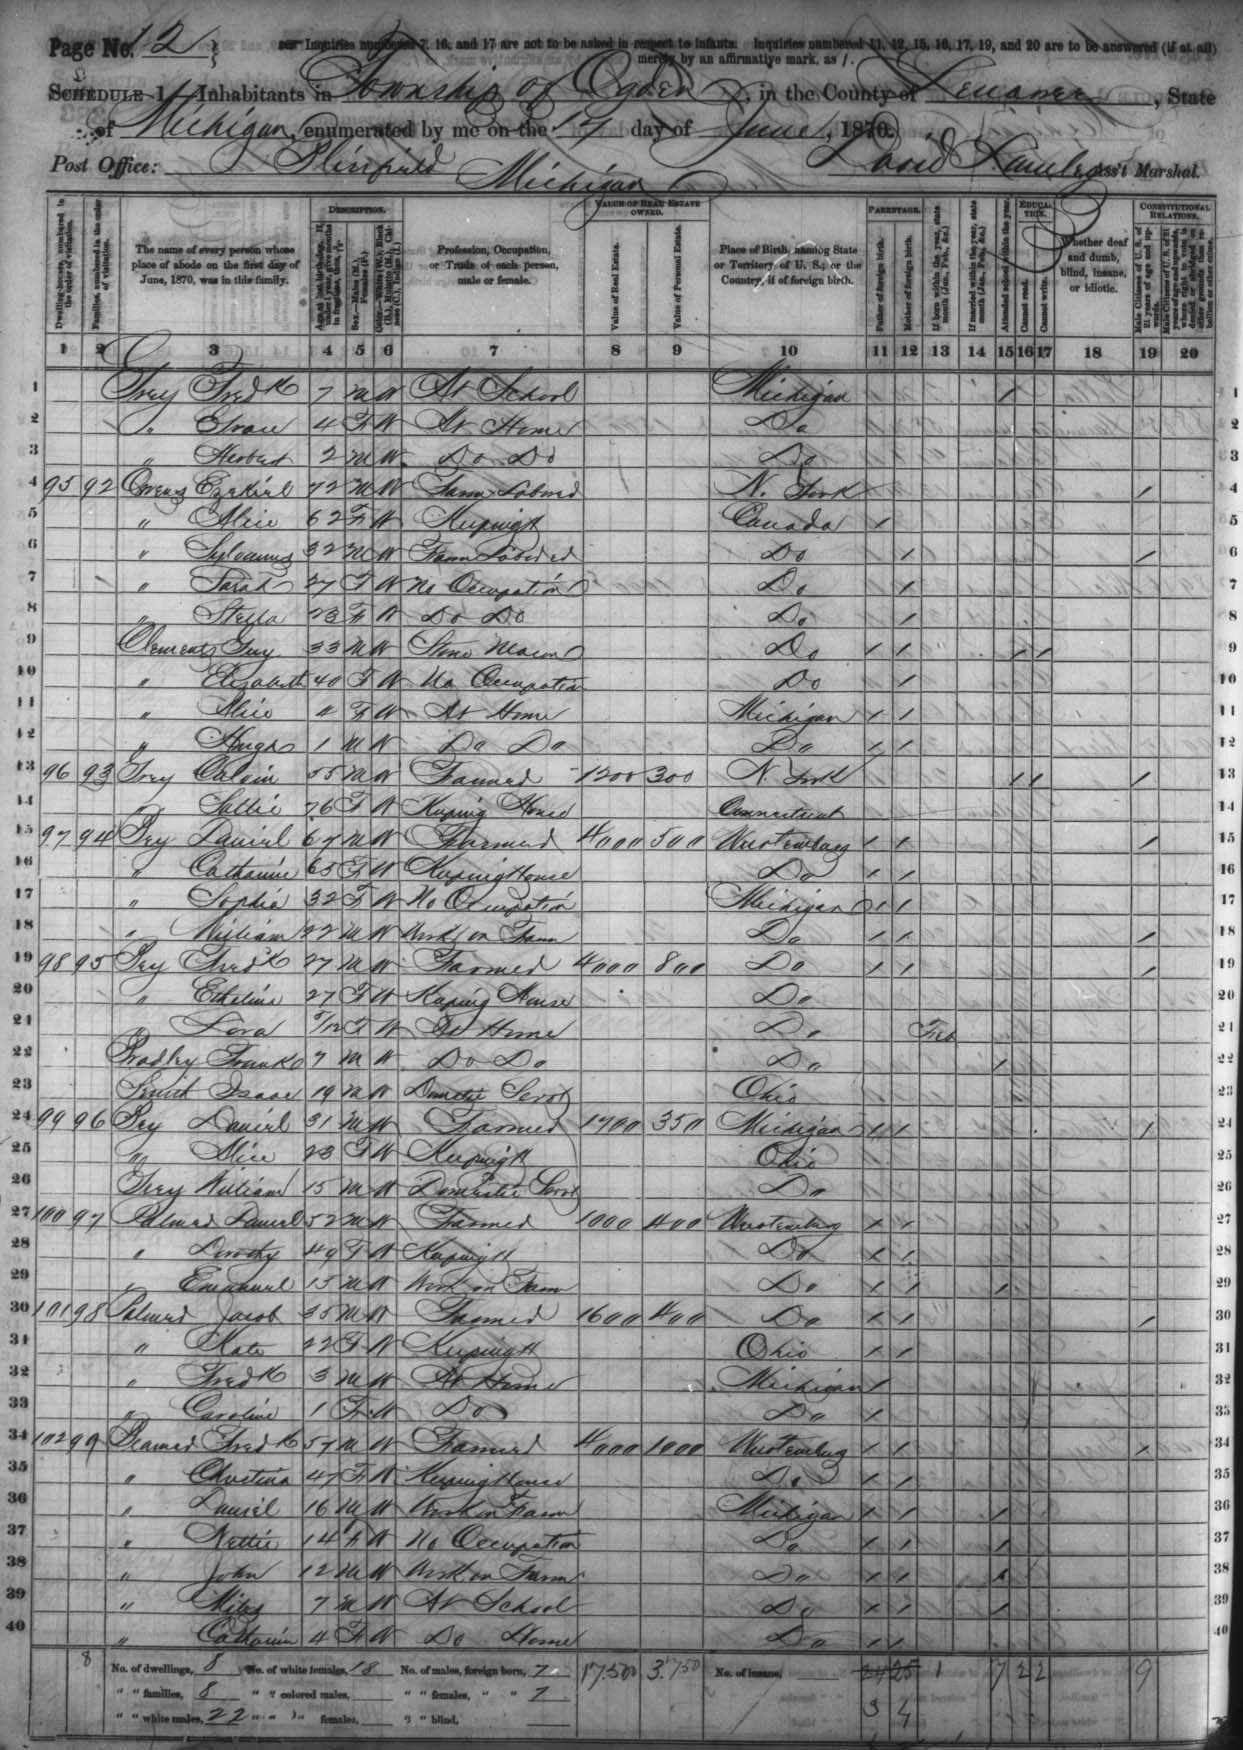 Page No. 12
Inquiries numbered 7, 16, and 17 are not to be asked in respect to infants. Inquiries numbered 11, 12, 15, 16, 17, 19, and 20 are to be answered (if at all)
merely by an affirmative mark, as /.
SCHEDULE 1.—Inhabitants in Township of Ogden, in the County of Lenawee, State
of Michigan, enumerated by me on the 17 day of June, 1870.
Post Office: Michigan David Ass't Marshal.
Dwelling-houses, numbered in the order of visitation.
Families, numbered in the order of visitation.
The name of every person whose place of abode on the first day of June, 1870, was in this family.
DESCRIPTION.
Profession, Occupation, or Trade of each person, male or female.
VALUE OF REAL ESTATE OWNED.
Value of Real Estate.
Value of Personal Estate.
Place of Birth, naming State or Territory of U. S.; or the Country, if of foreign birth.
PARENTAGE.
Father of foreign birth.
Mother of foreign birth.
If born within the year, state month (Jan., Feb., &c.)
If married within the year, state month (Jan., Feb., &c.)
Attended school within the year.
EDUCATION.
Cannot read.
Cannot write.
Whether deaf and dumb, blind, insane, or idiotic.
CONSTITUTIONAL RELATIONS.
1 2 3 4 5 6 7 8 9 10 11 12 13 14 15 16 17 18 19 20
1 Fredk 7 M W At School Michigan / 1
2 " 4 F W At Home Do 2
3 " Herbert 2 M W Do Do Do 3
4 95 92 Owens Ezekiel 72 M W Farm Laborer N. York / 4
5 " Alice 62 F W Keeping H Canada / 5
6 " Sylvanus 32 M W Farm Laborer Do / / 6
7 " Sarah 27 F W No Occupation Do / 7
8 " Stella 23 F W Do Do Do / 8
9 Clements Guy 33 M W Stone Mason Do / / / / 9
10 " Elizabeth 40 F W No Occupation Do / 10
11 " Alice 4 F W At Home Michigan / / 11
12 " Hugh 1 M W Do Do Do / / 12
13 96 93 Calvin 55 M W Farmer 1200 300 N. York / / / 13
14 " 76 F W Keeping House Connecticut 14
15 97 94 Daniel 67 M W Farmer 4000 500 Wurtemburg / / / 15
16 " Catharine 65 F W Keeping House Do / / 16
17 " Sophia 32 F W No Occupation Michigan / / 17
18 " William 22 M W Work on Farm Do / / / 18
19 98 95 Fredk 27 M W Farmer 4000 800 Do / / / 19
20 " 27 F W Keeping House Do 20
21 " Lora F W At Home Do Feb 21
22 Bradley Frank 7 M W Do Do Do / 22
23 Smith Isaac 19 M W Domestic Servt Ohio 23
24 99 96 Daniel 31 M W Farmer 1700 350 Michigan / / / 24
25 " Alice 23 F W Keeping H Ohio 25
26 William 15 M W Domestic Servt Do 26
27 100 97 Palmer Daniel 52 M W Farmer 1000 400 Wurtemburg / / 27
28 " Dorothy 49 F W Keeping H Do / / 28
29 " Emanuel 15 M W Work on Farm Do / / / 29
30 101 98 Palmer Jacob 35 M W Farmer 1600 400 Do / / / 30
31 " Kate 22 F W Keeping H Ohio / / 31
32 " Fredk 3 M W At Home Michigan / 32
33 " Caroline 1 F W Do Do / 33
34 102 99 Fredk 57 M W Farmer 4000 1000 Wurtemburg / / / 34
35 " Christina 47 F W Keeping House Do / / 35
36 " Daniel 16 M W Work on Farm Michigan / / / 36
37 " Nettie 14 F W No Occupation Do / / / 37
38 " John 12 M W Work on Farm Do / / / 38
39 " Miles 7 M W At School Do / / / 39
40 " Catharine 4 F W Do Home Do / / 40
8 No. of dwellings, 8 No. of white females, 18 No. of males, foreign born, 7 17,500 3,750 No. of insane, 24 25 1 7 2 2 9
" " families, 8 " " colored males, " " females, " " 7 3 4
" " white males, 22 " " " females, " " blind,